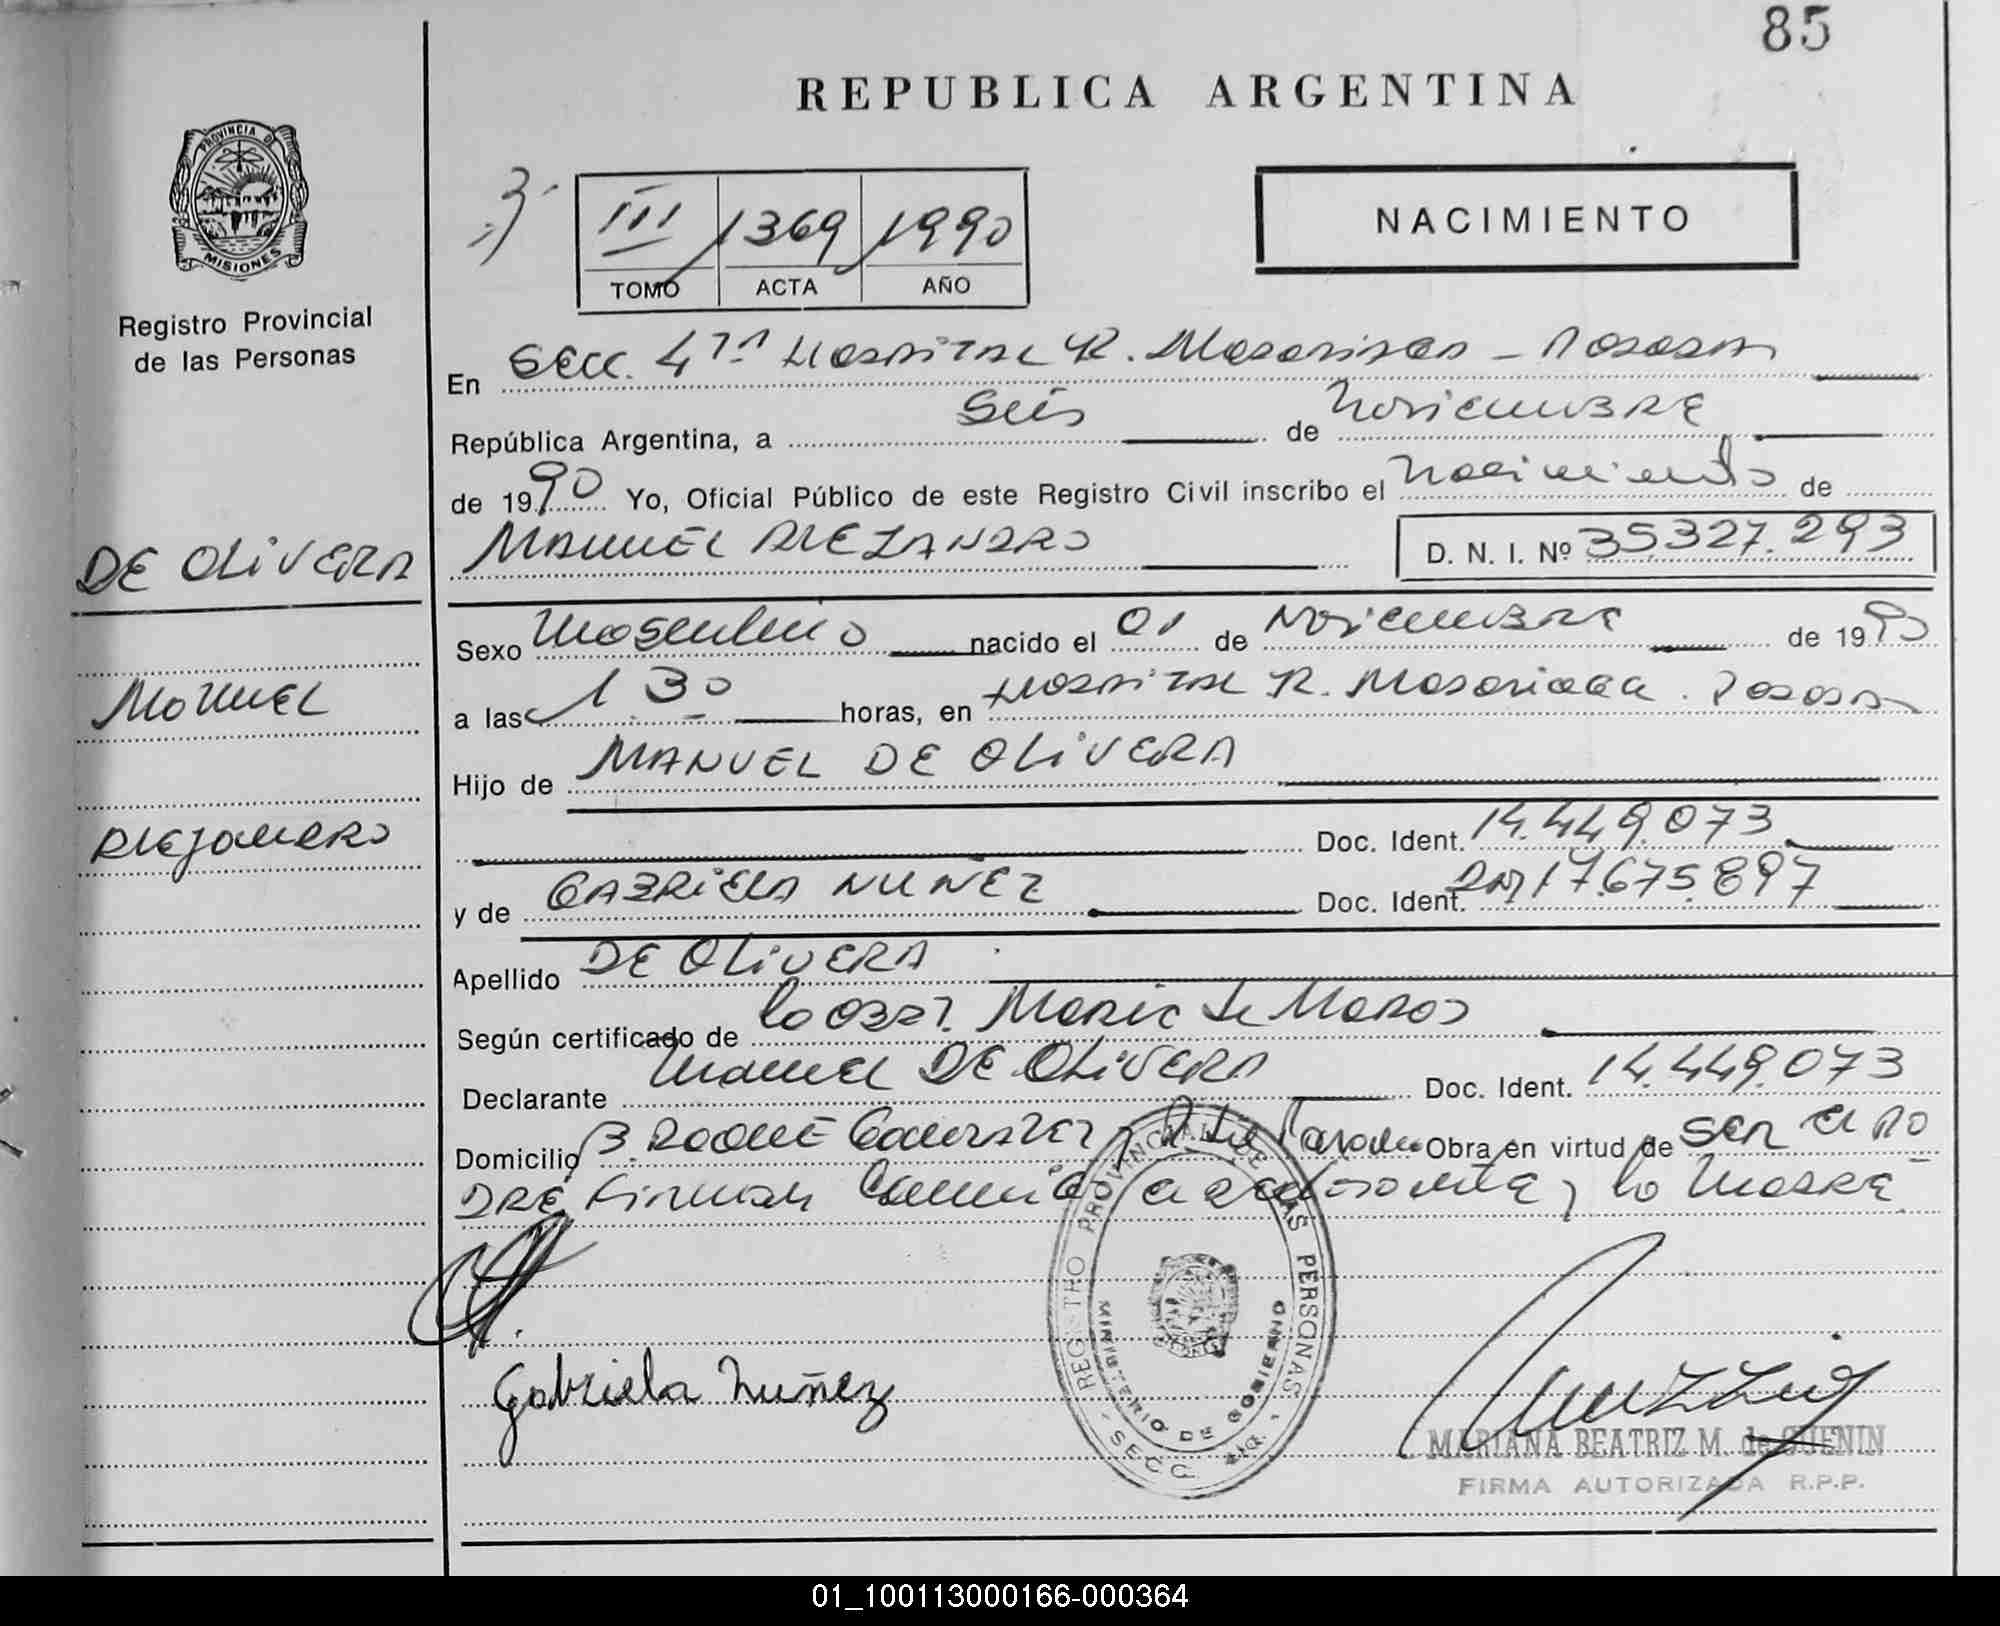 85
REPUBLICA ARGENTINA
PROVINCIA DE
MISIONES
Registro Provincial
de las Personas
III 1369 1990
TOMO ACTA AÑO
NACIMIENTO
En Secc. 4ta Hospital R. Madariaga - Posadas
República Argentina, a Seis de Noviembre
de 1990 Yo, Oficial Público de este Registro Civil inscribo el Nacimiento de
DE OLIVERA
MANUEL ALEJANDRO D. N. I. Nº 35327.293
Sexo Masculino nacido el 01 de Noviembre de 1990
Manuel
a las 1 30 horas, en Hospital R. Madariaga. Posadas
Hijo de MANUEL DE OLIVERA
Alejandro
Doc. Ident. 14.449.073
y de GABRIELA NUÑEZ Doc. Ident. DNI 17.675.897
Apellido DE OLIVERA
Según certificado de la Obst. Maria
Declarante Manuel DE OLIVERA Doc. Ident. 14.449.073
Domicilio B. ROQUE Gonzalez Obra en virtud de ser el Pa
DRE Firman la madre
Gabriela Nuñez
REGISTRO PROVINCIAL DE LAS PERSONAS
MINISTERIO DE GOBIERNO
SECC.
MARIANA BEATRIZ M. de GUENIN
FIRMA AUTORIZADA R.P.P.
01_100113000166-000364